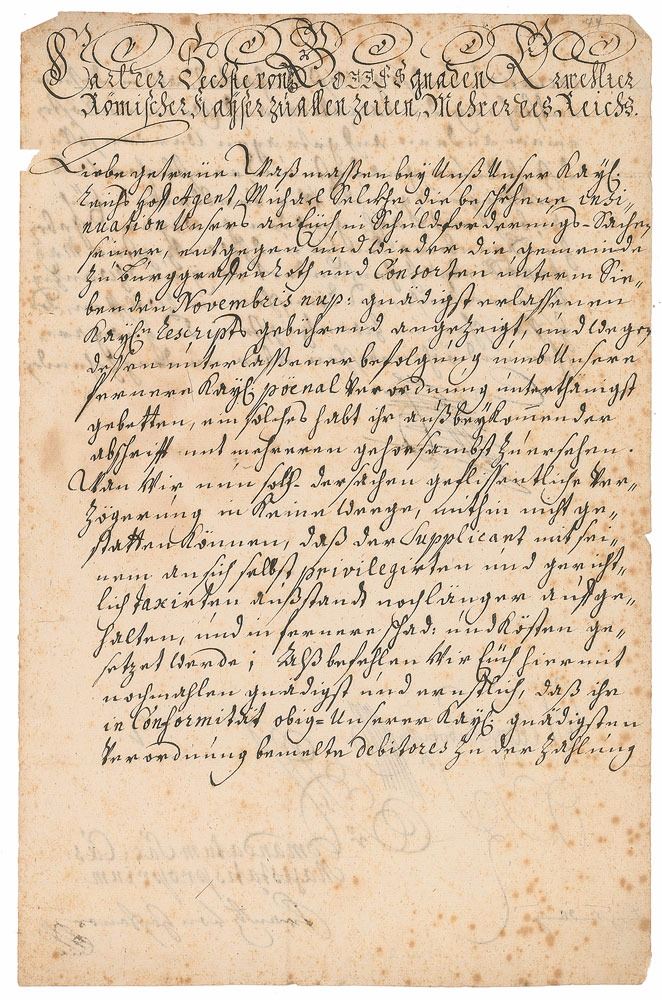 Carl der Sechste von GOTTES gnaden Erwehlter
Römischer Kayser zu allen Zeiten, Mehrer des Reichs.
Liebe getreüe. Waß massen bey Unß Unser Kayl.
Reichs Hoff Agent, Michael die beschehene insi„
nuation Unsers an Eüch in Schuldforderungs-Sachen
seiner, entgegen und wieder die gemeinde
zu Burggraffenroth und Consorten unterm Sie„
benden Novembris nup: gnädigst erlassenen
Kayln. rescripts gebührend angezeigt, und wegen
dessen unterlassener befolgung umb Unsere
fernere Kayl. poenal Verordnung unterthänigst
gebetten, ein solches habt ihr auß beykommender
abschrifft mit mehreren gehorsambst zu ersehen.
Wan Wir nun solch-der sachen geflissentliche Ver„
zögerung in keine weege, mithin nicht ge„
statten können, daß der Supplicant mit sei„
nem an sich selbst privilegirten und gericht„
lich taxirten außstand noch länger auffge„
halten, und in fernere schad: und kösten ge„
setzet werde; Alß befehlen Wir Eüch hiermit
nochmahlen gnädigst und ernstlich, daß ihr
in Conformität obig-Unserer Kayl. gnädigsten
Verordnung bemelte debitores zu der Zahlung